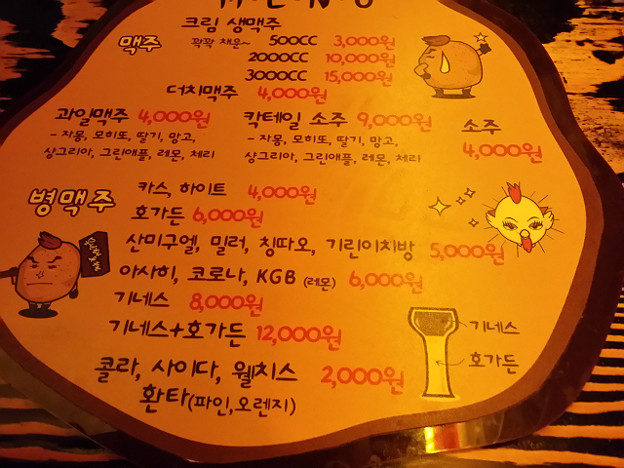 크림 생맥주
맥주 꽉꽉 채운~ 500CC 3,000원
2000CC 10,000원
3000CC 15,000원
더치맥주 4,000원
과일맥주 4,000원 칵테일 소주 9,000원 소주
- 자몽, 모히또, 딸기, 망고, - 자몽, 모히또, 딸기, 망고, 4,000원
샹그리아, 그린애플, 레몬, 체리 샹그리아, 그린애플, 레몬, 체리
병맥주 카스, 하이트 4,000원
호가든 6,000원
산미구엘, 밀러, 칭따오, 기린이치방 5,000원
아사히, 코로나, KGB (레몬) 6,000원
기네스 8,000원
기네스+호가든 12,000원
기네스
호가든
콜라, 사이다, 웰치스 2,000원
환타(파인,오렌지)